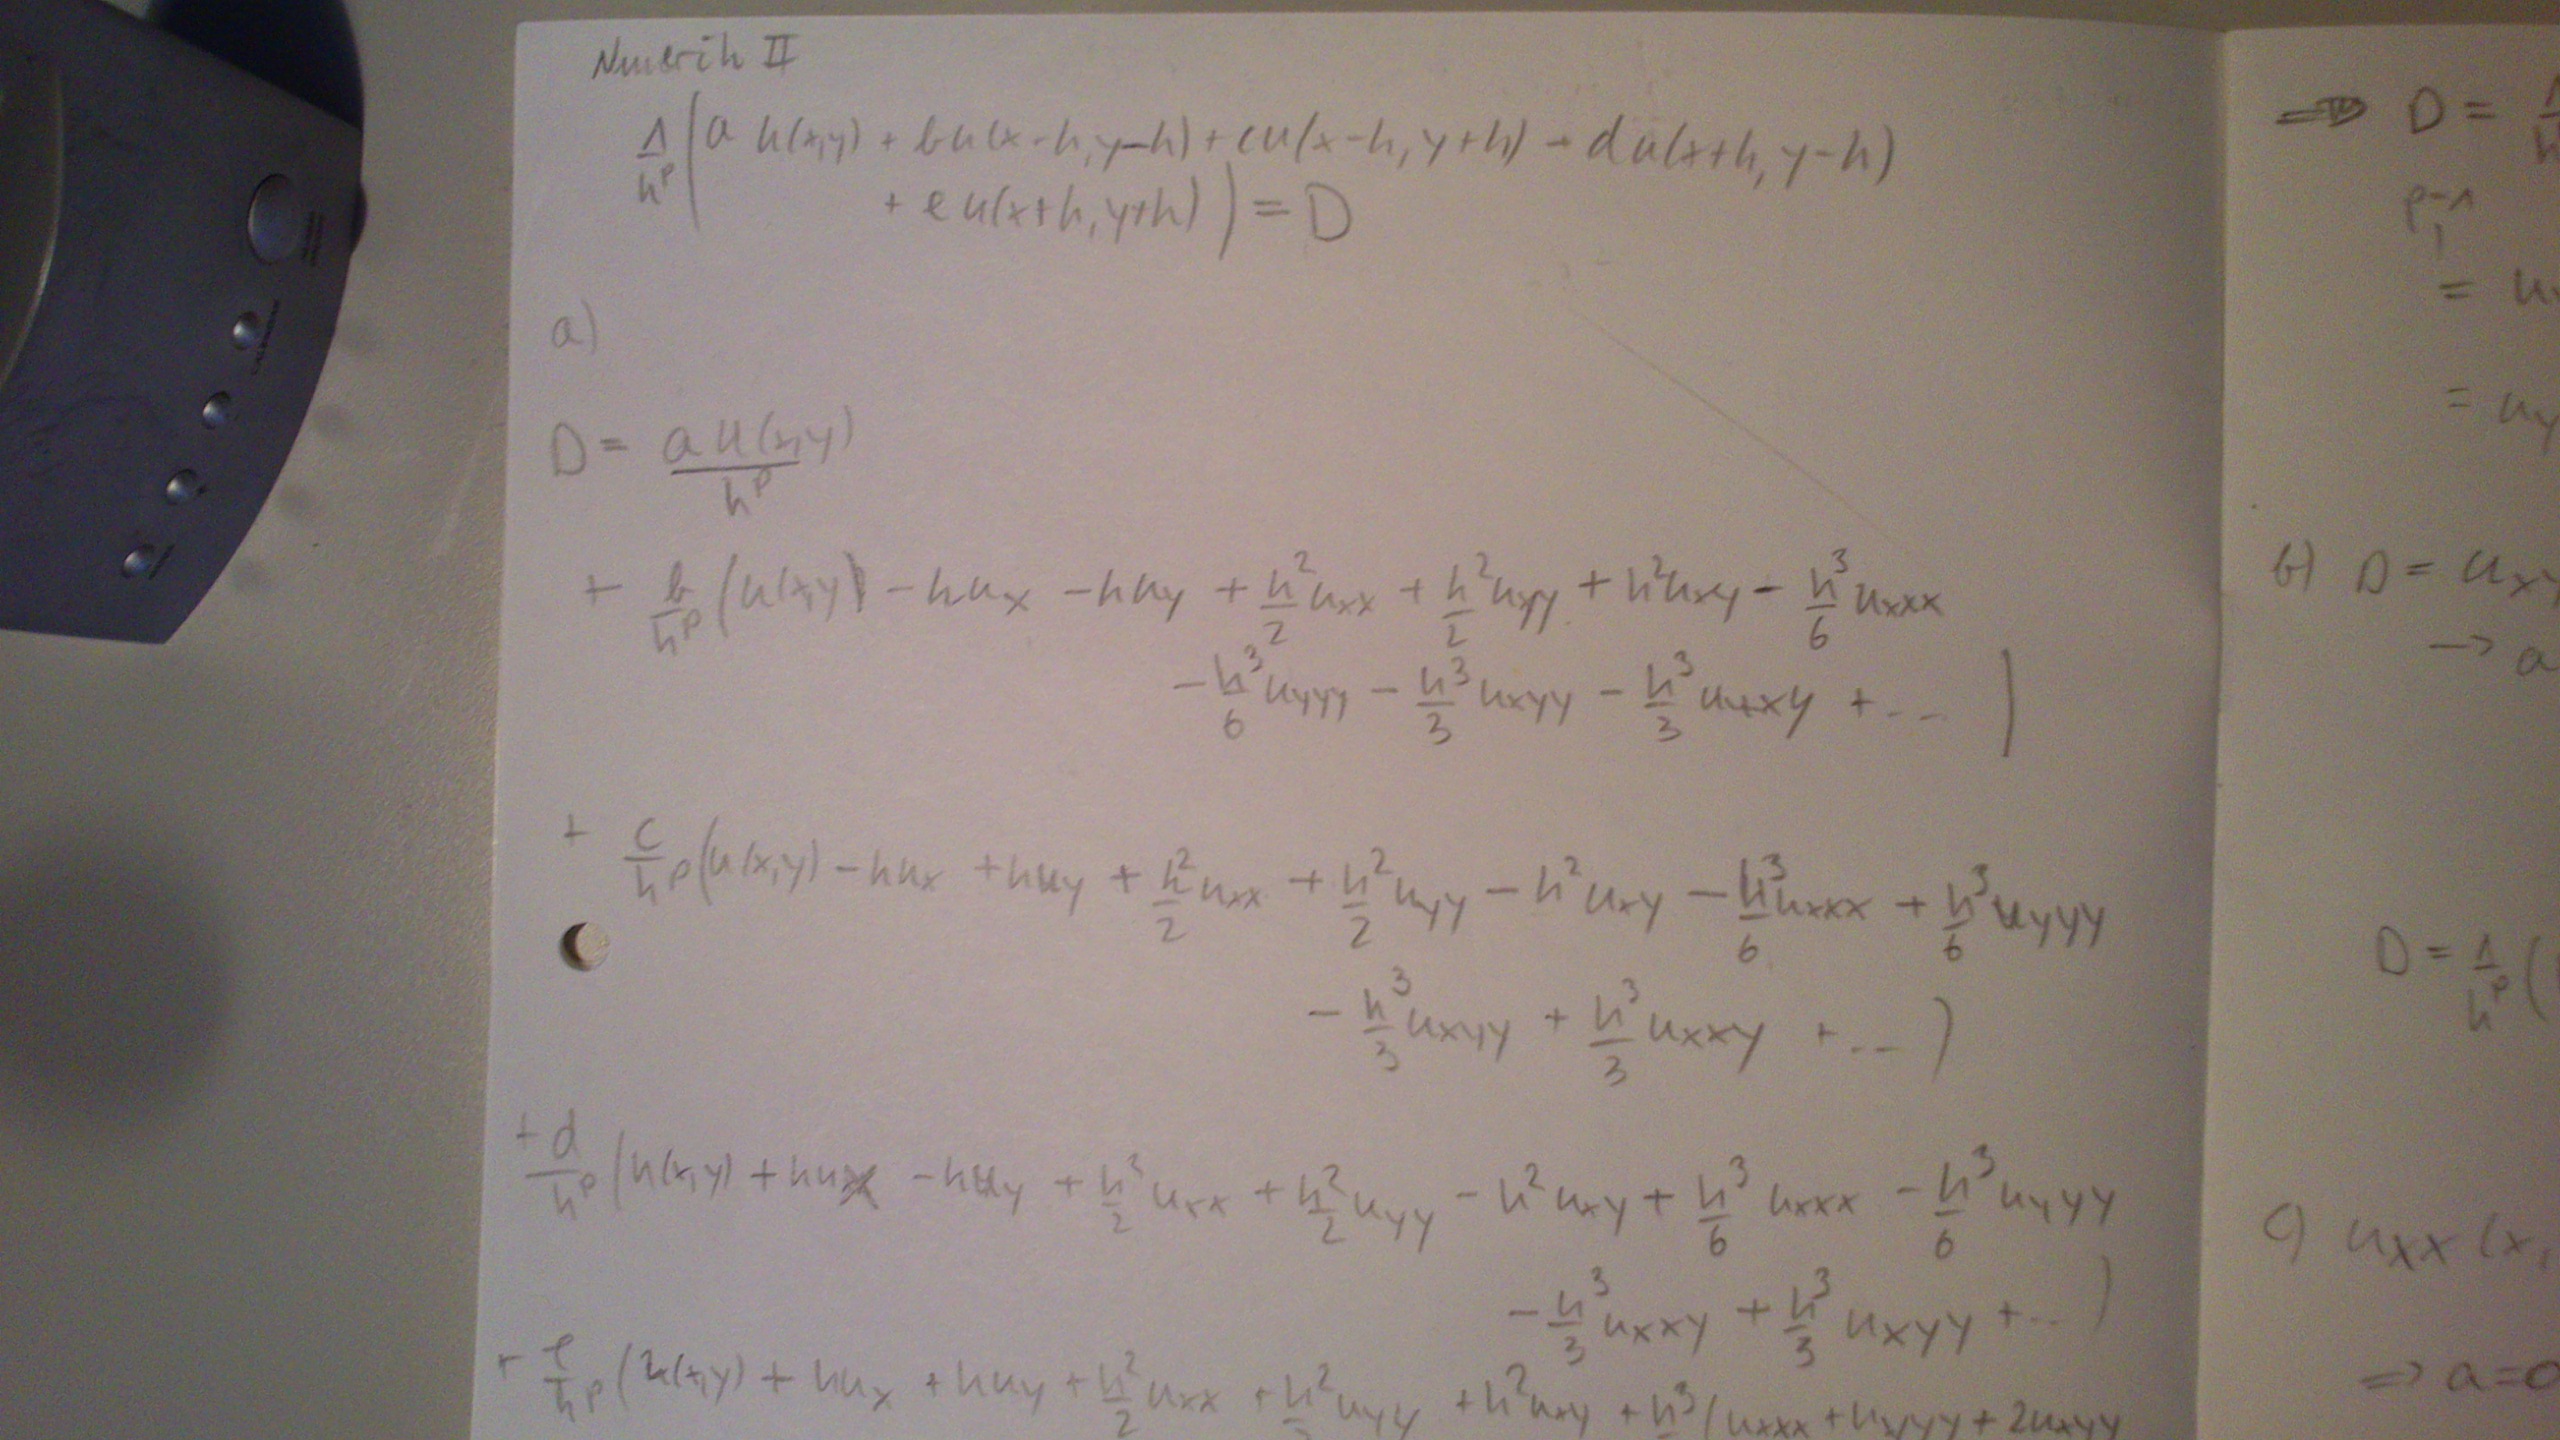 Numerik II
1/h^p ( a u(x,y) + b u(x-h, y-h) + c u(x-h, y+h) + d u(x+h, y-h)
+ e u(x+h, y+h) ) = D
a)
D = a u(x,y) / h^p
+ b/h^p ( u(x,y) - h u_x - h u_y + h^2/2 u_xx + h^2/2 u_yy + h^2 u_xy - h^3/6 u_xxx
- h^3/6 u_yyy - h^3/3 u_xyy - h^3/3 u_xxy + ... )
+ c/h^p ( u(x,y) - h u_x + h u_y + h^2/2 u_xx + h^2/2 u_yy - h^2 u_xy - h^3/6 u_xxx + h^3/6 u_yyy
- h^3/3 u_xyy + h^3/3 u_xxy + ... )
+ d/h^p ( u(x,y) + h u_x - h u_y + h^2/2 u_xx + h^2/2 u_yy - h^2 u_xy + h^3/6 u_xxx - h^3/6 u_yyy
- h^3/3 u_xxy + h^3/3 u_xyy + ... )
+ e/h^p ( u(x,y) + h u_x + h u_y + h^2/2 u_xx + h^2/2 u_yy + h^2 u_xy + h^3 ( u_xxx + u_yyy + 2u_xyy
⇒ D = 1/h
p=1
= u
= u_y
b) D = u_xy
→ a
D = 1/h^p (
c) u_xx (x,
⇒ a=0